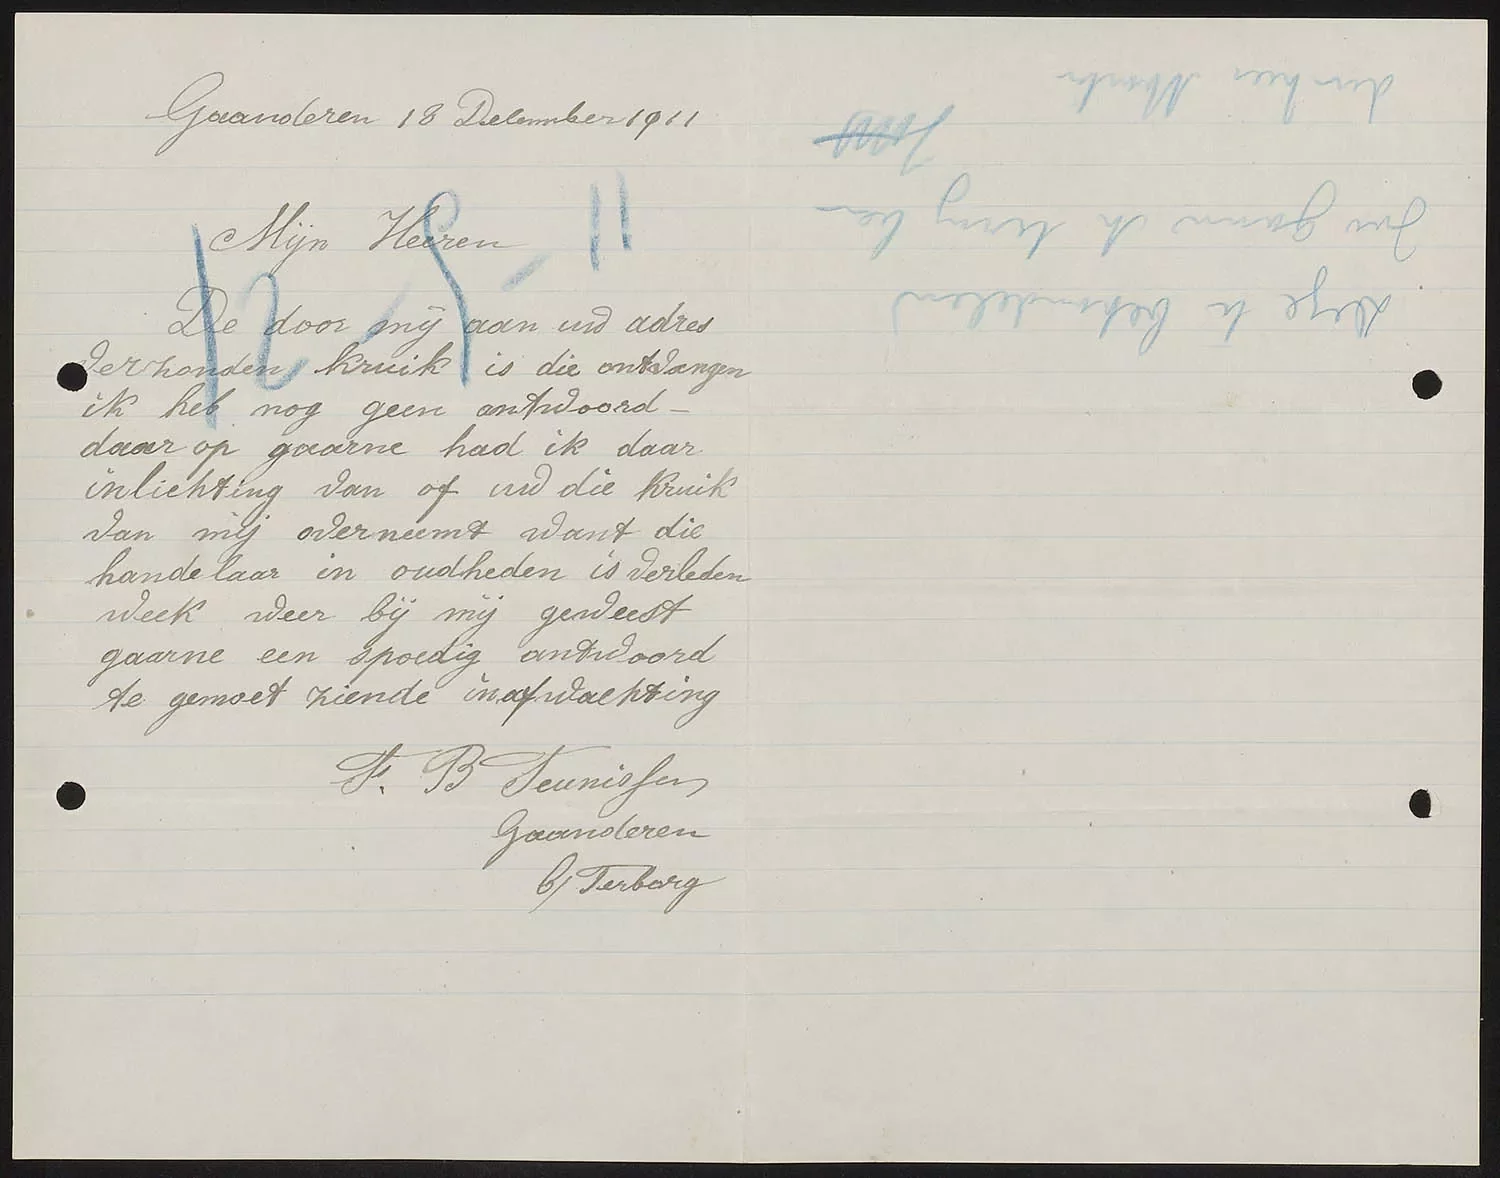 Gaanderen 18 December 1911
Mijn Heeren
De door mij aan uw adres
verzonden kruik is die ontvangen
ik heb nog geen antwoord –
daar op gaarne had ik daar
inlichting van of uw die kruik
van mij overneemt want die
handelaar in oudheden is verleden
week weer bij mij geweest
gaarne een spoedig antwoord
te gemoet ziende inafwachting
Fs. B Teunissen
Gaanderen
b/ Terborg
12-9-11
den heer
te behandelen